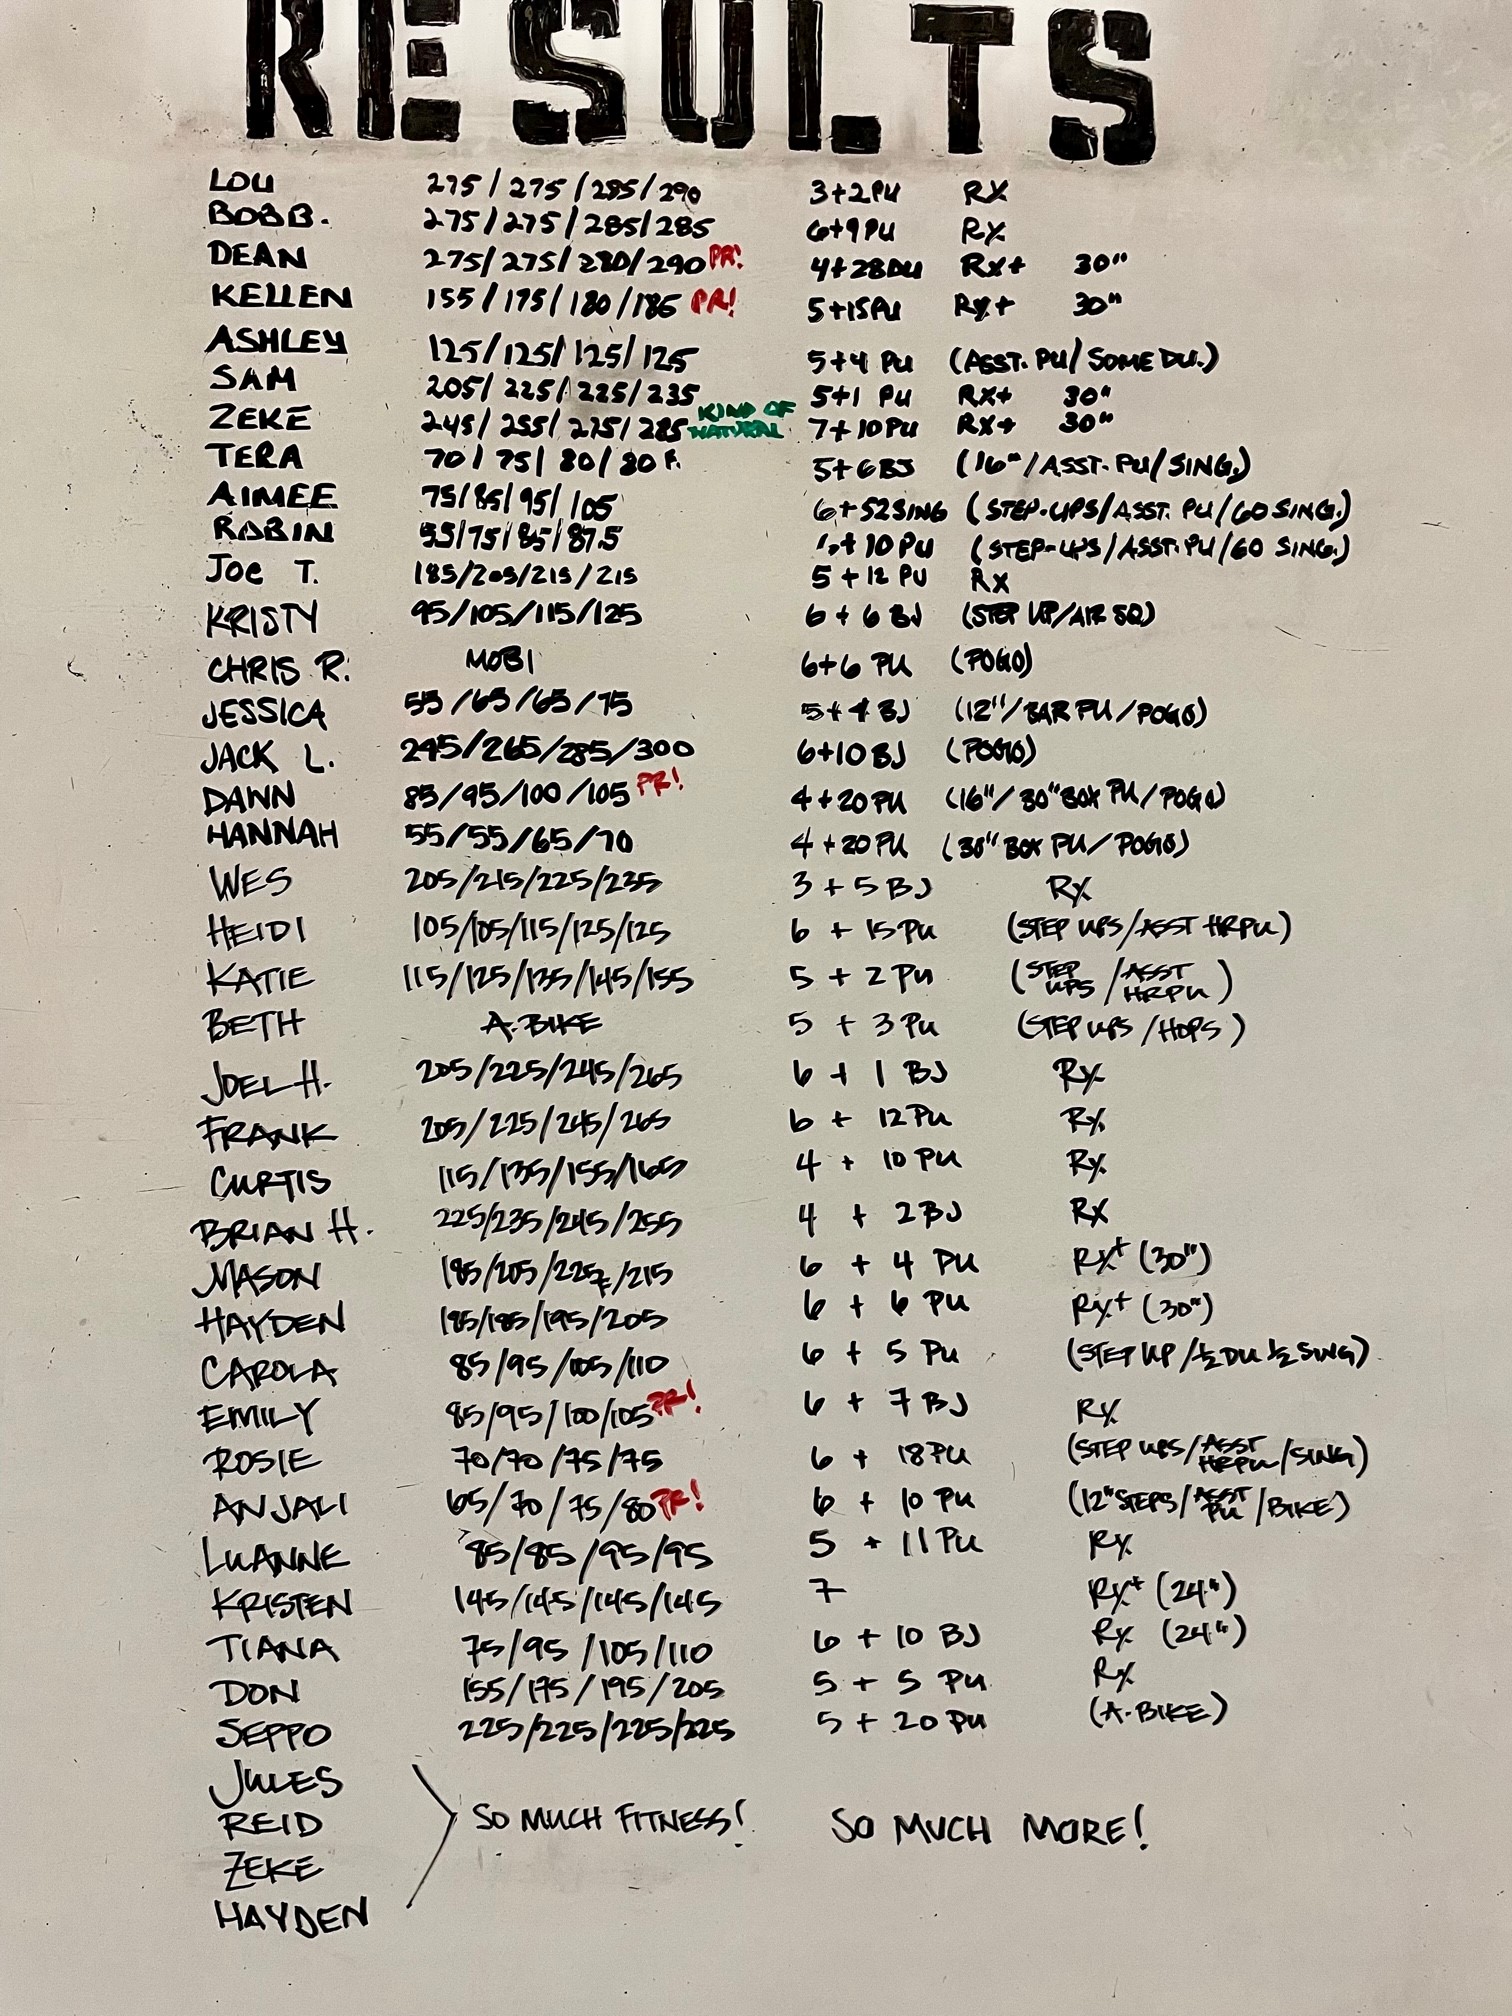 RESULTS
LOU 275/275/285/290 3+2PU RX
BOBB. 275/275/285/285 6+9PU RX
DEAN 275/275/280/290 PR! 4+28DU RX+ 30"
KELLEN 155/175/180/185 PR! 5+15PU RX+ 30"
ASHLEY 125/125/125/125 5+4 PU (ASST. PU/SOME DU.)
SAM 205/225/225/235 5+1 PU RX+ 30"
ZEKE 245/255/275/285 KIND OF NATURAL 7+10PU RX+ 30"
TERA 70/75/80/80 F. 5+6BJ (16"/ASST. PU/SING.)
AIMEE 75/85/95/105 6+52SING (STEP-UPS/ASST. PU/60 SING.)
ROBIN 55/75/85/87.5 + 10 PU (STEP-UPS/ASST. PU/60 SING.)
JOE T. 185/205/215/215 5+12 PU RX
KRISTY 95/105/115/125 6+6 BJ (STEP UP/AIR SQ)
CHRIS R. MOBI 6+6 PU (POGO)
JESSICA 55/65/65/75 5+4 BJ (12"/BAR PU/POGO)
JACK L. 245/265/285/300 6+10 BJ (POGO)
DAWN 85/95/100/105 PR! 4+20 PU (16"/30" BOX PU/POGO)
HANNAH 55/55/65/70 4+20 PU (30" BOX PU/POGO)
WES 205/215/225/235 3+5 BJ RX
HEIDI 105/105/115/125/125 6+15 PU (STEP UPS/ASST HRPU)
KATIE 115/125/135/145/155 5+2 PU (STEP UPS/ASST HRPU)
BETH A.BIKE 5+3 PU (STEP UPS/HOPS)
JOEL H. 205/225/245/265 6+1 BJ RX
FRANK 205/225/245/265 6+12 PU RX
CURTIS 115/135/155/165 4+10 PU RX
BRIAN H. 225/235/245/255 4+2 BJ RX
MASON 185/205/225F/215 6+4 PU RX+ (30")
HAYDEN 185/185/195/205 6+6 PU RX+ (30")
CAROLA 85/95/105/110 6+5 PU (STEP UP/½ DU ½ SING)
EMILY 85/95/100/105 PR! 6+7 BJ RX
ROSIE 70/70/75/75 6+18 PU (STEP UPS/ASST HRPU/SING)
ANJALI 65/70/75/80 PR! 6+10 PU (12" STEPS/ASST PU/BIKE)
LUANNE 85/85/95/95 5+11 PU RX
KRISTEN 145/145/145/145 7 RX+ (24")
TIANA 75/95/105/110 6+10 BJ RX (24")
DON 155/175/195/205 5+5 PU RX
SEPPO 225/225/225/225 5+20 PU (A.BIKE)
JULES
REID SO MUCH FITNESS! SO MUCH MORE!
ZEKE
HAYDEN